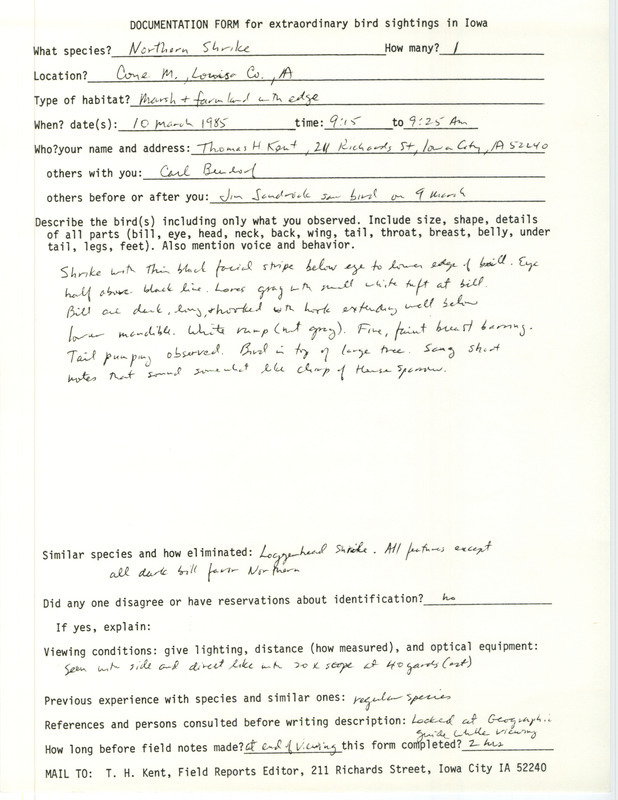 DOCUMENTATION FORM for extraordinary bird sightings in Iowa
What species? Northern Shrike How many? 1
Location? Cone M., Louisa Co., IA
Type of habitat? Marsh + farmland with edge
When? date(s): 10 March 1985 time: 9:15 to 9:25 AM
Who? your name and address: Thomas H Kent, 211 Richards St, Iowa City, IA 52240
others with you: Carl Bendorf
others before or after you: Jim Sandrock saw bird on 9 March
Describe the bird(s) including only what you observed. Include size, shape, details
of all parts (bill, eye, head, neck, back, wing, tail, throat, breast, belly, under
tail, legs, feet). Also mention voice and behavior.
Shrike with thin black facial stripe below eye to lower edge of bill. Eye
half above black line. Lores gray with small white tuft at bill.
Bill all dark, long, + hooked with hook extending well below
lower mandible. White rump (not gray). Fine, faint breast barring.
Tail pumping observed. Bird in top of large tree. Sang short
notes that sound somewhat like chirp of House Sparrow.
Similar species and how eliminated: Loggerhead Shrike. All features except
all dark bill favor Northern
Did any one disagree or have reservations about identification? no
If yes, explain:
Viewing conditions: give lighting, distance (how measured), and optical equipment:
Seen with side and direct light with 20x scope at 40 yards (est)
Previous experience with species and similar ones: regular species
References and persons consulted before writing description: Looked at Geographic
guide while viewing
How long before field notes made? at end of viewing this form completed? 2 hrs
MAIL TO: T. H. Kent, Field Reports Editor, 211 Richards Street, Iowa City IA 52240